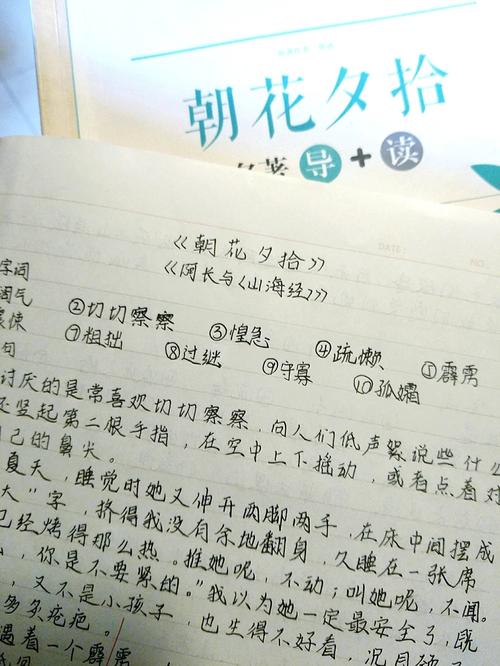 朝花夕拾
名著 导+读
《朝花夕拾》
《阿长与〈山海经〉》
字词
②切切察察 ③惶急 ④疏懒 ⑤霹雳
⑦粗拙 ⑧过继 ⑨守寡 ⑩孤孀
句
讨厌的是常喜欢切切察察,向人们低声絮说些什么
还竖起第二根手指,在空中上下摇动,或者点着对
自己的鼻尖。
夏天,睡觉时她又伸开两脚两手,在床中间摆成
大"字,挤得我没有余地翻身,久睡在一张席
已经烤得那么热。推她呢,不动;叫她呢,不闻。
,你是不要紧的。"我以为她一定最安全了,既
,又不是小孩子,也生得不好看,况且
多多疮疤。
遇着一个霹雳